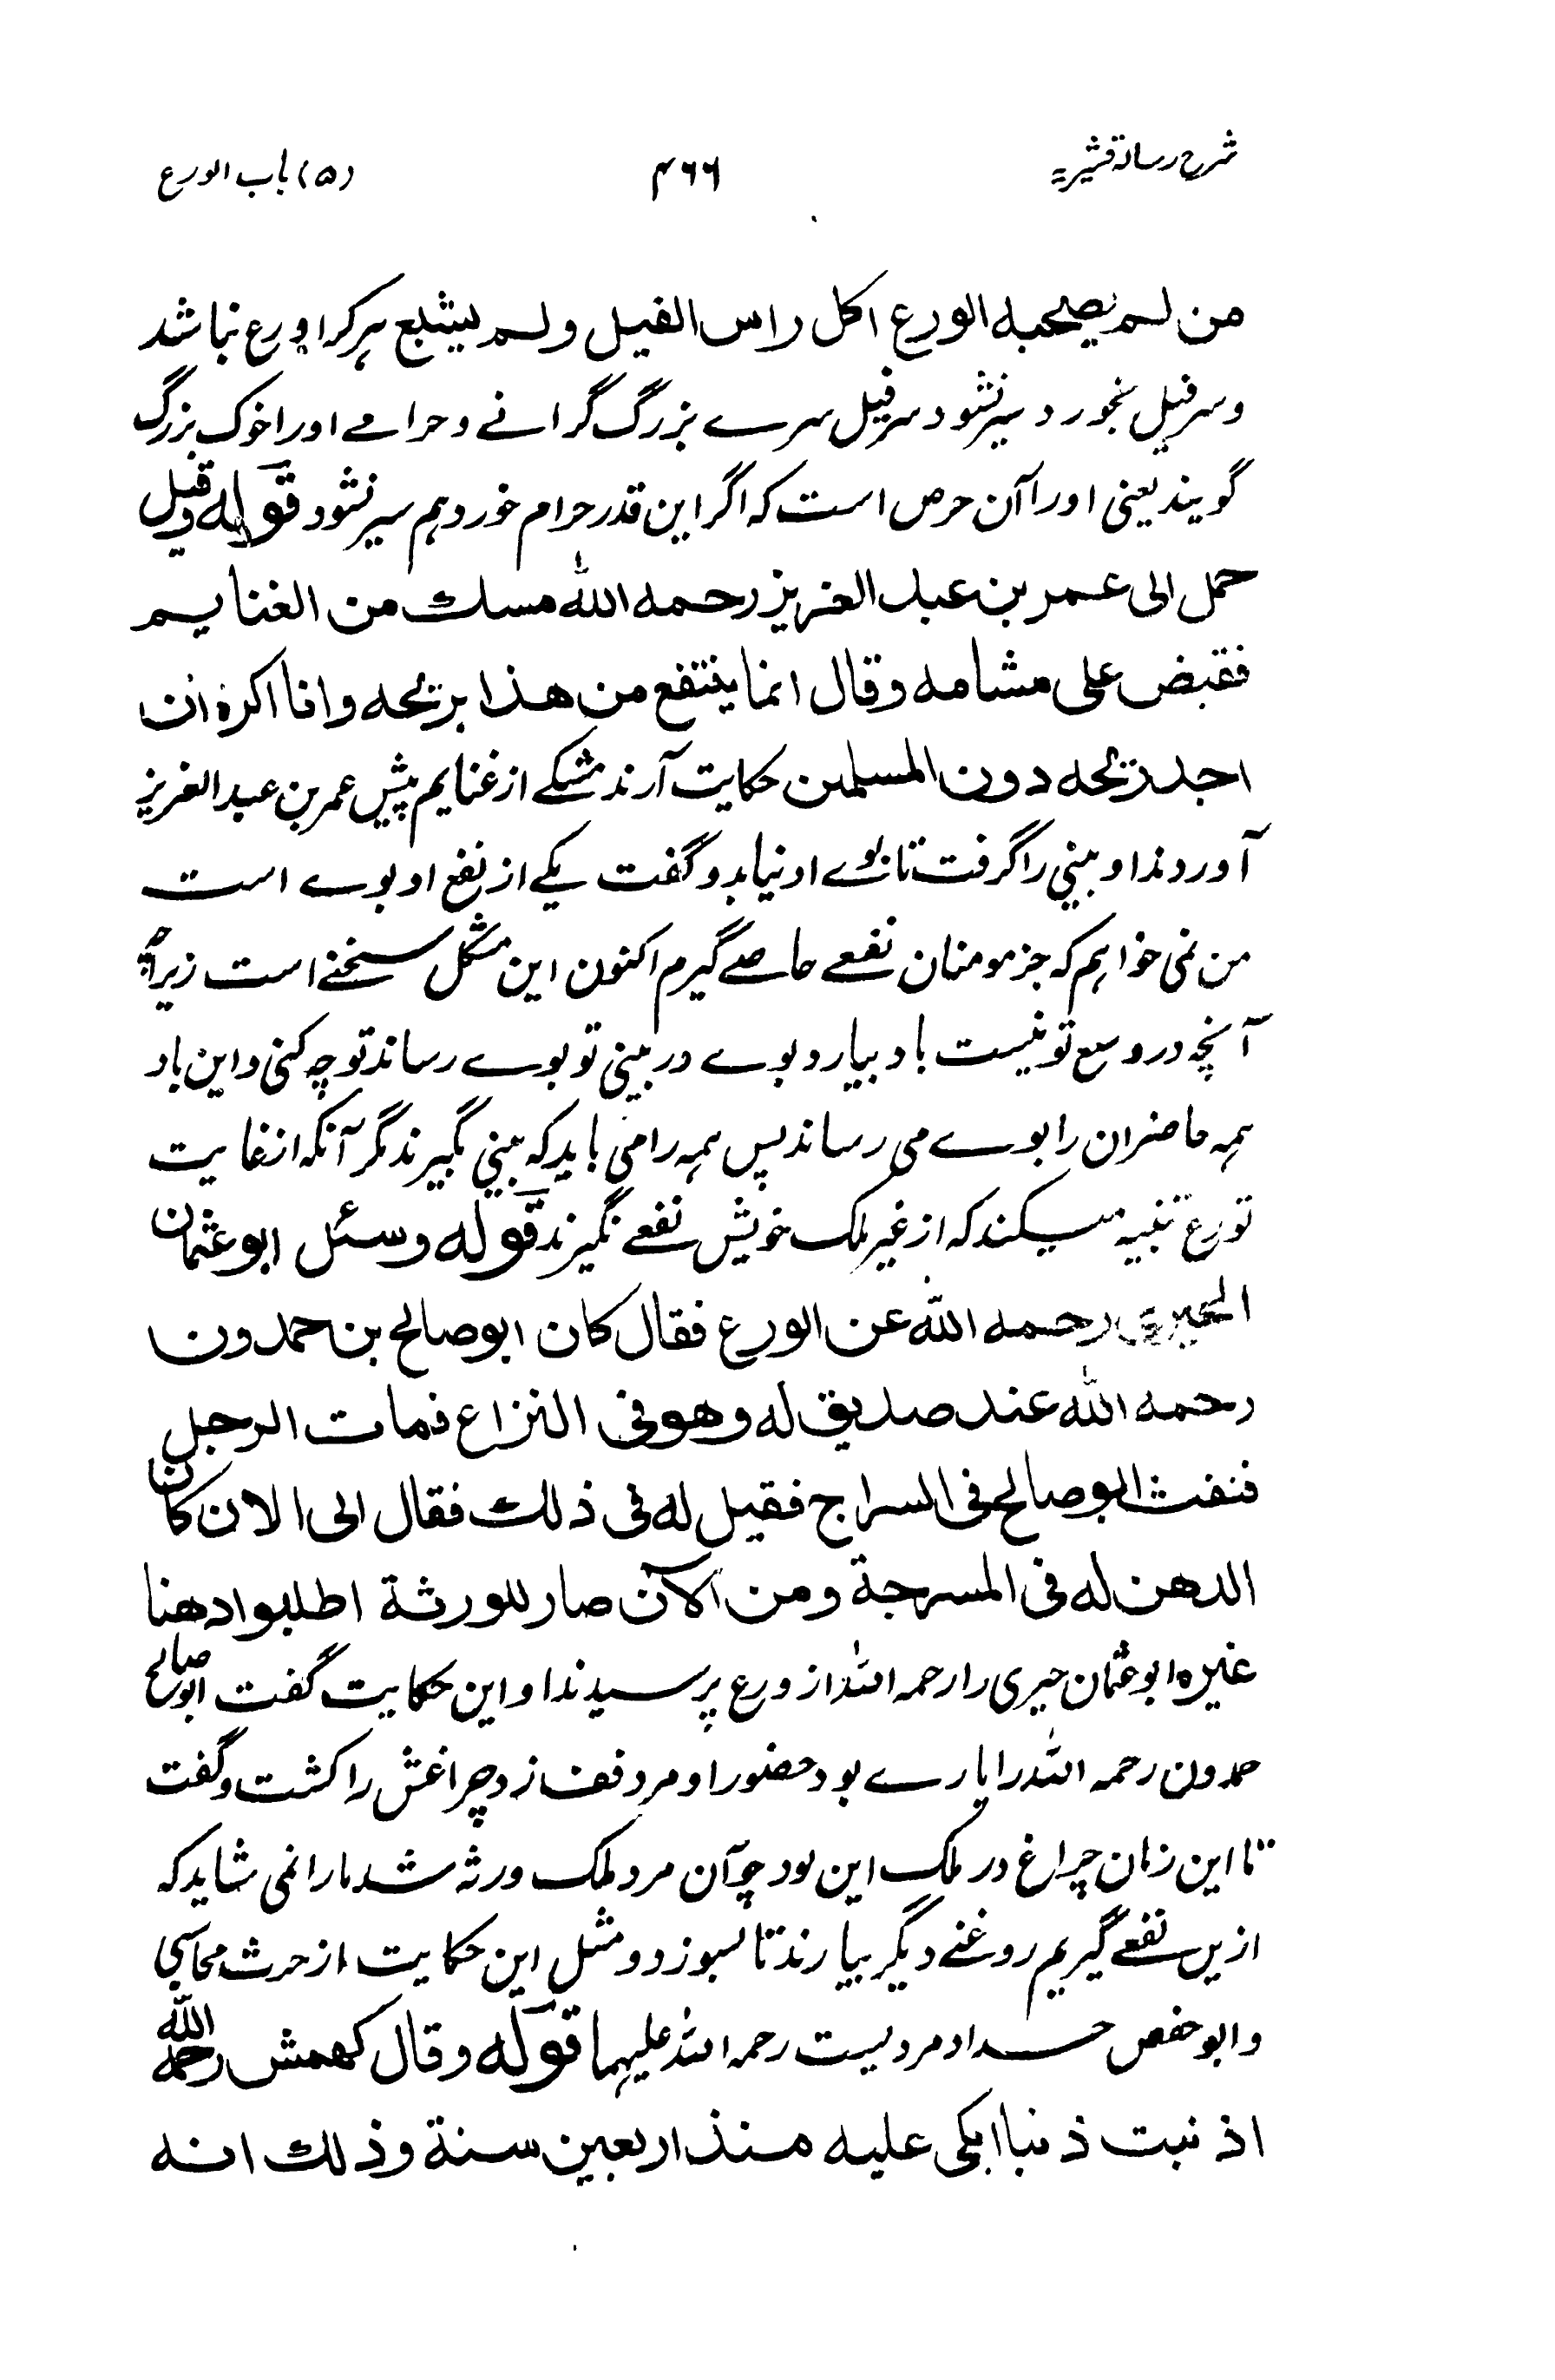 شرح رسالہ قشیریہ
۴۶۶
(۵) باب الورع
من لم یصحبه الورع اکل راس الفیل ولم یشبع ہرکرا ورع نباشد
وسر فیل بخورد سیر نشود سر فیل سرے بزرگ گرانے وحرامے اورا خوک بزرگ
گویند یعنی اورا آن حرص است کہ اگر این قدر حرام خورد ہم سیر نشود قوله وقیل
حمل الی عمر بن عبد العزیز رحمه الله مسك من الغنایم
فقبض علی مشامه وقال انما ینتفع من هذا بریحه وانا اکره ان
اجد ریحه دون المسلمین حکایت آرند مشکے از غنایم پیش عمر بن عبد العزیز
آوردند او بینی را گرفت تا بوے او نیابد و گفت یکے از نفع او بوے است
من نمی خواہم کہ جز مومنان نفعے حاصلے گیرم اکنون این مشکل سخنے است زیراکہ
آنچہ در وسع تو نیست باد بیارد بوے در بینی تو بوے رساند تو چہ کنی و این باد
ہمہ حاضران را بوے می رساند پس ہمہ را می باید کہ بینی بگیرند مگر آنکہ از غایت
تورع تنبیہ میکند کہ از غیر ملک خویش نفعے نگیرند قوله وسئل ابو عثمان
الحیری رحمه الله عن الورع فقال کان ابو صالح بن حمدون
رحمه الله عند صدیق له وهو فی النزاع فمات الرجل
فنفث ابو صالح فی السراج فقیل له فی ذلك فقال الی الان کان
الدهن له فی المسرجة ومن الآن صار للورثة اطلبوا دهنا
غیره ابو عثمان حیری را رحمہ اللہ از ورع پرسیدند او این حکایت گفت ابو صالح
حمدون رحمہ اللہ را یارے بود حضور او مرد فف زد چراغش را کشت و گفت
تا این زمان چراغ در ملک این بود چو آن مرد ملک ورثہ شد مارا نمی شاید کہ
ازین نفعے گیریم روغنے دیگر بیارند تا بسوزد و مثل این حکایت از حرث محاسبی
و ابو حفص حداد مرویست رحمہ اللہ علیہما قوله وقال کهمش رحمه الله
اذنبت ذنبا ابکی علیه منذ اربعین سنة وذلك انه